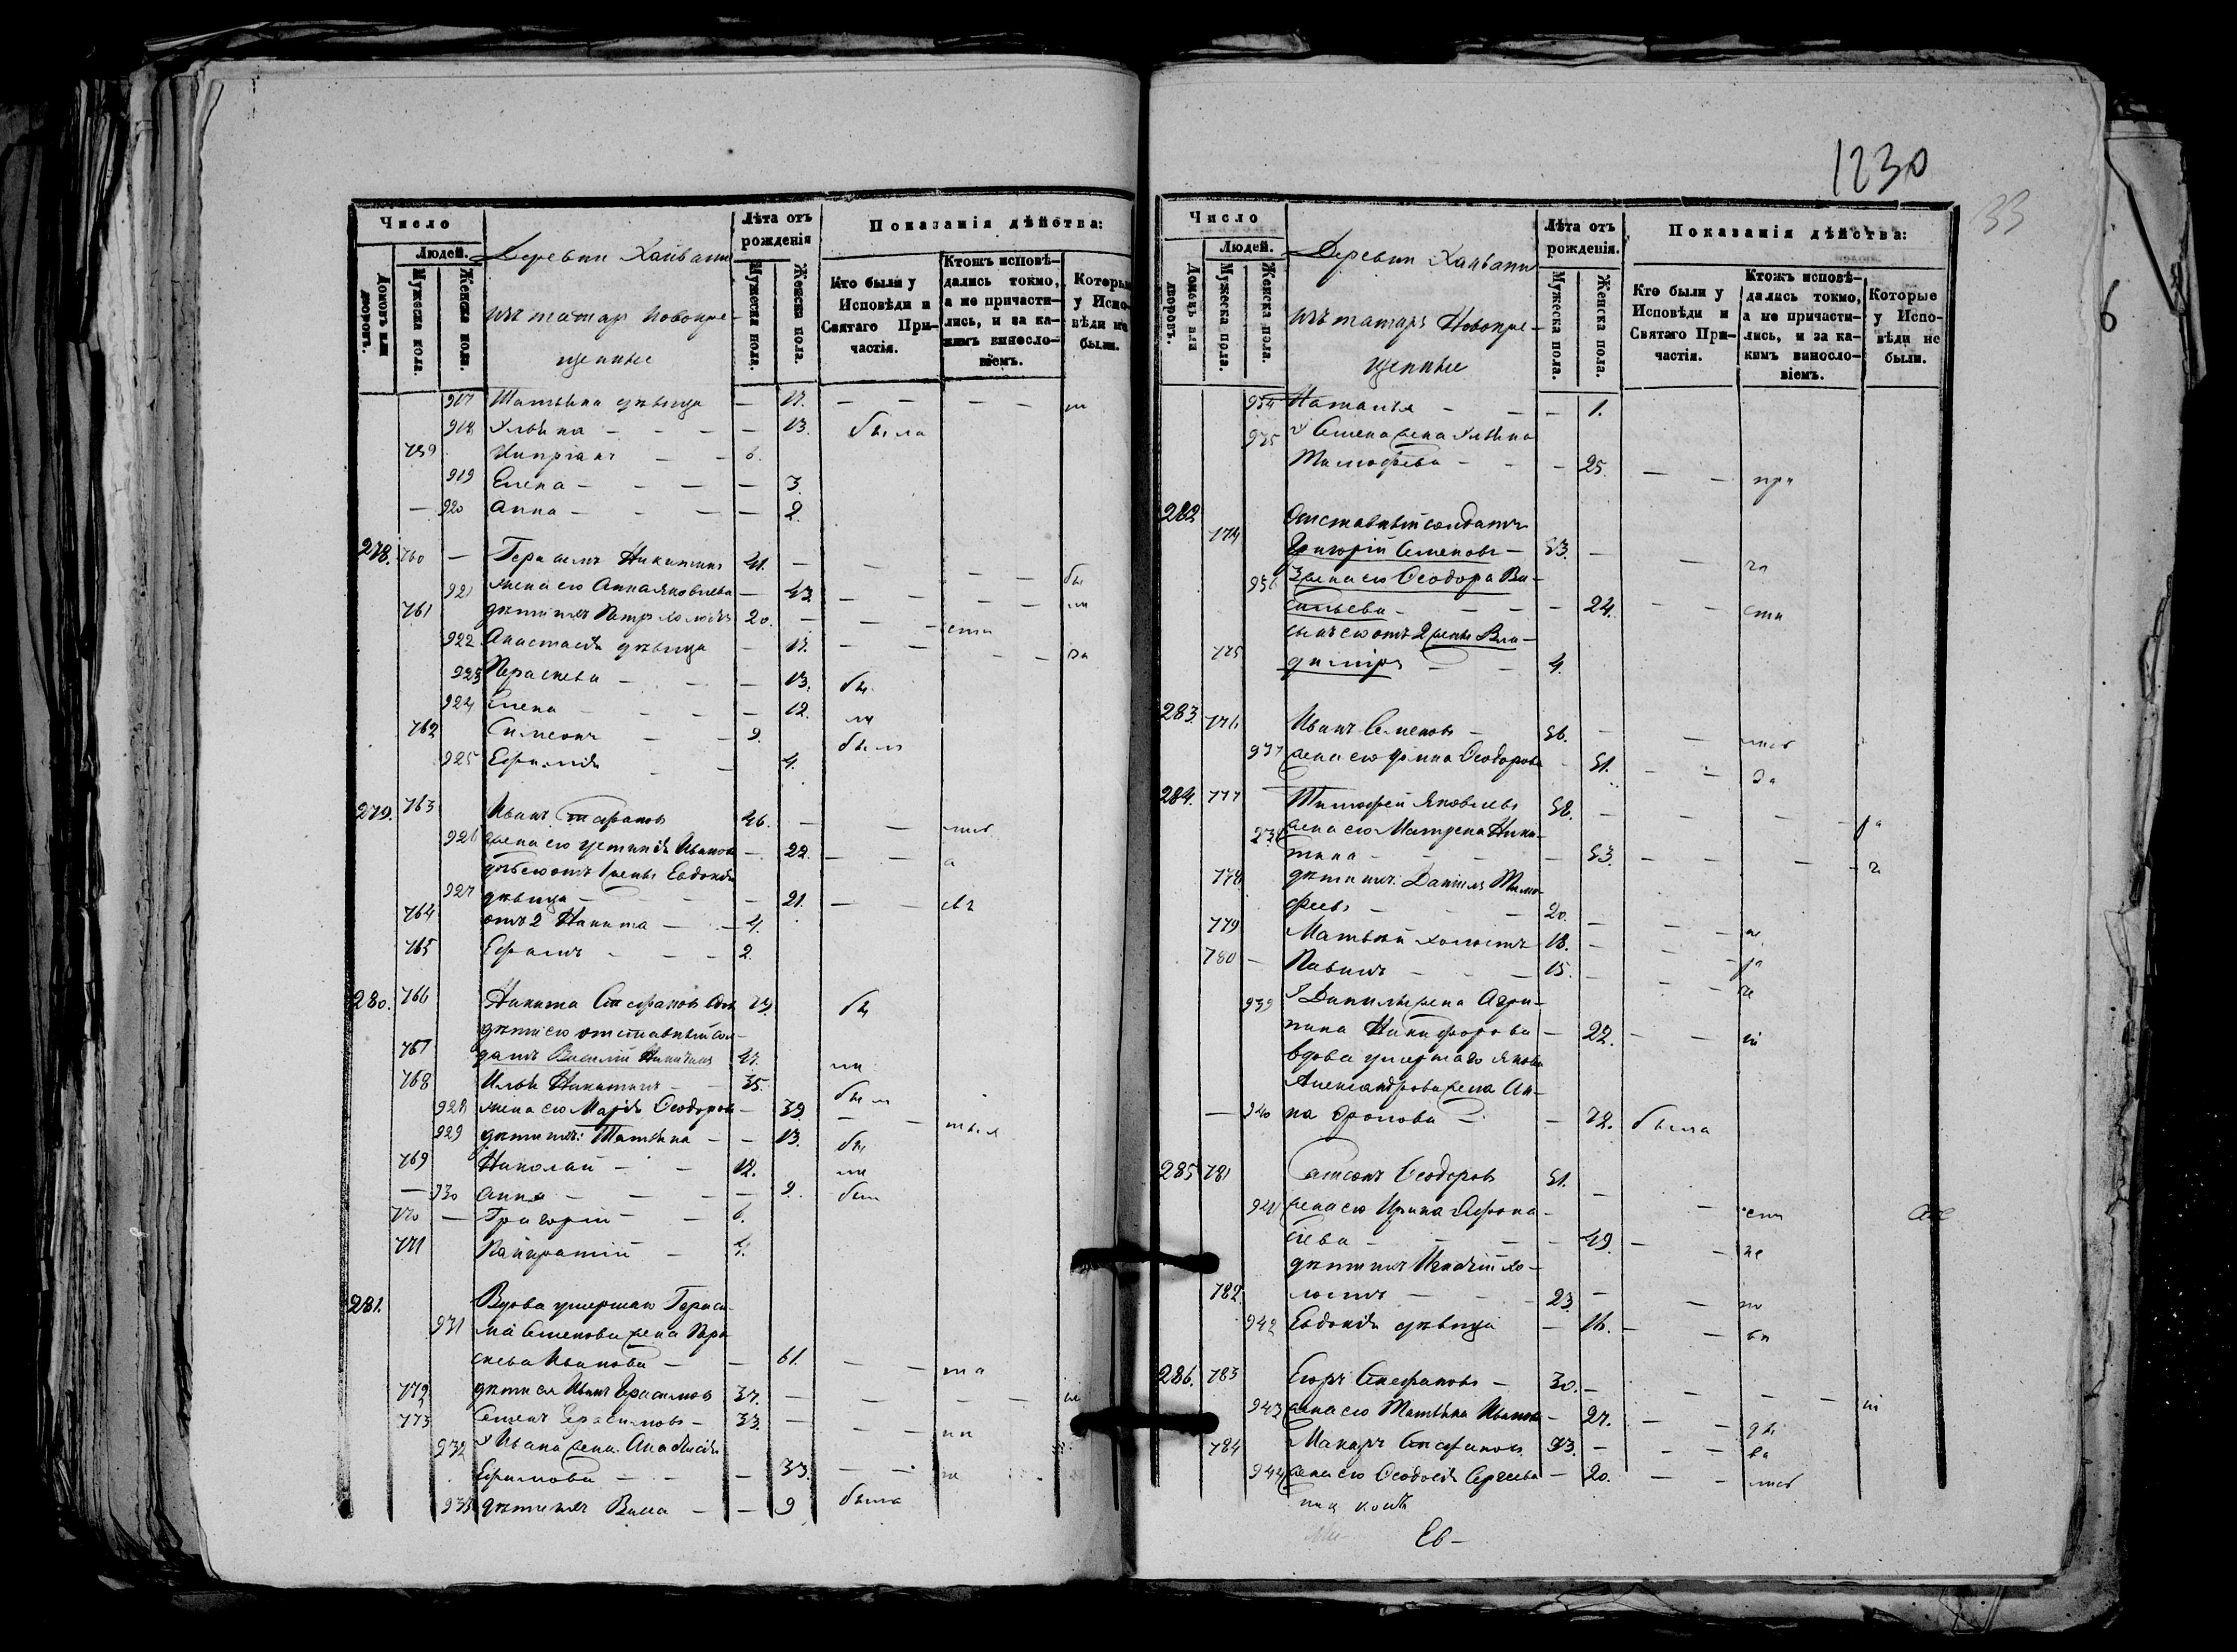 Число
Людей.
Домовъ или дворовъ.
Мужеска пола.
Женска пола.
Деревни Хайвани
изъ татаръ Новокре-
щенные
Лѣта отъ рожденія
Мужеска пола.
Женска пола.
Показанія дѣйства:
Кто были у Исповѣди и Святаго Причастія.
Ктожъ исповѣ-
дались токмо,
а не причасти-
лись, и за ка-
кимъ винословіемъ.
Которые у Исповѣди не были.
917 Татьяна дѣвица — 17. — — — —
918 Ульяна — — — — 13. была
759 Кипріанъ — — 6.
919 Елена — — — — 3.
— 920 Анна — — — — 2.
278. 760 — Герасимъ Никитинъ 41. — — — — бы
921 жена его Анна Яковлева — 43. — — — — ли
761 дѣти ихъ Петръ холостъ 20. — — —
922 Анастасія дѣвица — 17. — — — —
923 Параскева — — — 13. бы
924 Елена — — — — 12. ли
762 Симеонъ — — 9. былъ
925 Ефимія — — 4.
279. 763 Иванъ Стефановъ 46. — —
926 жена его Устинія Иванова — 22. — —
дѣти его отъ 1 жены Евдокія
927 дѣвица — — — — 21. — —
764 отъ 2 Никита — — 4.
765 Ефремъ — — — 2.
280. 766 Никита Стефановъ вдов 73. бы
дѣти его отставный сол-
767 датъ Василій Никитинъ 47. ли
768 Илья Никитинъ — — 35. был
928 жена его Марія Ѳеодорова — 39. — —
929 дѣти ихъ: Татьяна — — 13. бы
769 Николай — — 12. ли
— 930 Анна — — — — 9. был
770 — Григорій — — 6.
771 Панкратій — 4.
281. Вдова умершаго Гераси-
931 ма Семенова жена Пара-
скева Иванова — — 61. — —
772 дѣти ея Иванъ Герасимовъ 37. — — — —
773 Семенъ Герасимовъ — 33. — — —
932 У Ивана жена Анастасія
Ефимова — — — 33. — —
933 дѣти ихъ Васса — — 9 была
1230
33
Число
Людей.
Домовъ или дворовъ.
Мужеска пола.
Женска пола.
Деревни Хайвани
изъ татаръ Новокре-
щенные
Лѣта отъ рожденія.
Мужеска пола.
Женска пола.
Показанія дѣйства:
Кто были у Исповѣди и Святаго Причастія.
Ктожъ исповѣ-
дались токмо,
а не причасти-
лись, и за ка-
кимъ винословіемъ.
Которые у Исповѣди не были.
6
934 Наталья — — — 1.
935 У Семена жена Ульяна
Тимофеева — — — 25. — — при
282 Отставный солдатъ
774 Григорій Семеновъ — 53. — — ча
936 3 жена его Ѳеодора Ва-
сильева — — — — 24. — — сти
сынъ его отъ 2 жены Вла-
775 диміръ — — 4.
283. 776 Иванъ Семеновъ — 56. — —
937 жена его Ѳеодорова — 51. — — за
284. 777 Тимофей Яковлевъ 58. — — — —
938 жена его Матрена Ники-
тина — — — — 53. — — — —
778 дѣти ихъ: Даніилъ Тимо-
феевъ — — — 20. — — —
779 Матвѣй холостъ 18. — — —
780 — Павелъ — — — 15. — — —
939 У Даніила жена Агри-
пина Никифорова — 22. — —
вдова умершаго Якова
Александрова жена Ан-
— 940 на Фролова — — 72. была
285 781 Самсонъ Ѳеодоровъ 51. — —
941 жена его Ирина Афона-
сьева — — — — 49. — — не
дѣти ихъ Игнатій хо-
782. лостъ — — — 23. — — по
942 Евдокія дѣвица — 16. — —
286. 783 Егоръ Стефановъ — 30. — — — —
943 жена его Татьяна Иванова — 27. — —
784 Макаръ Стефановъ 33. — — —
944 жена его Ѳеодосія Сергеева — 20. — —
Ев-